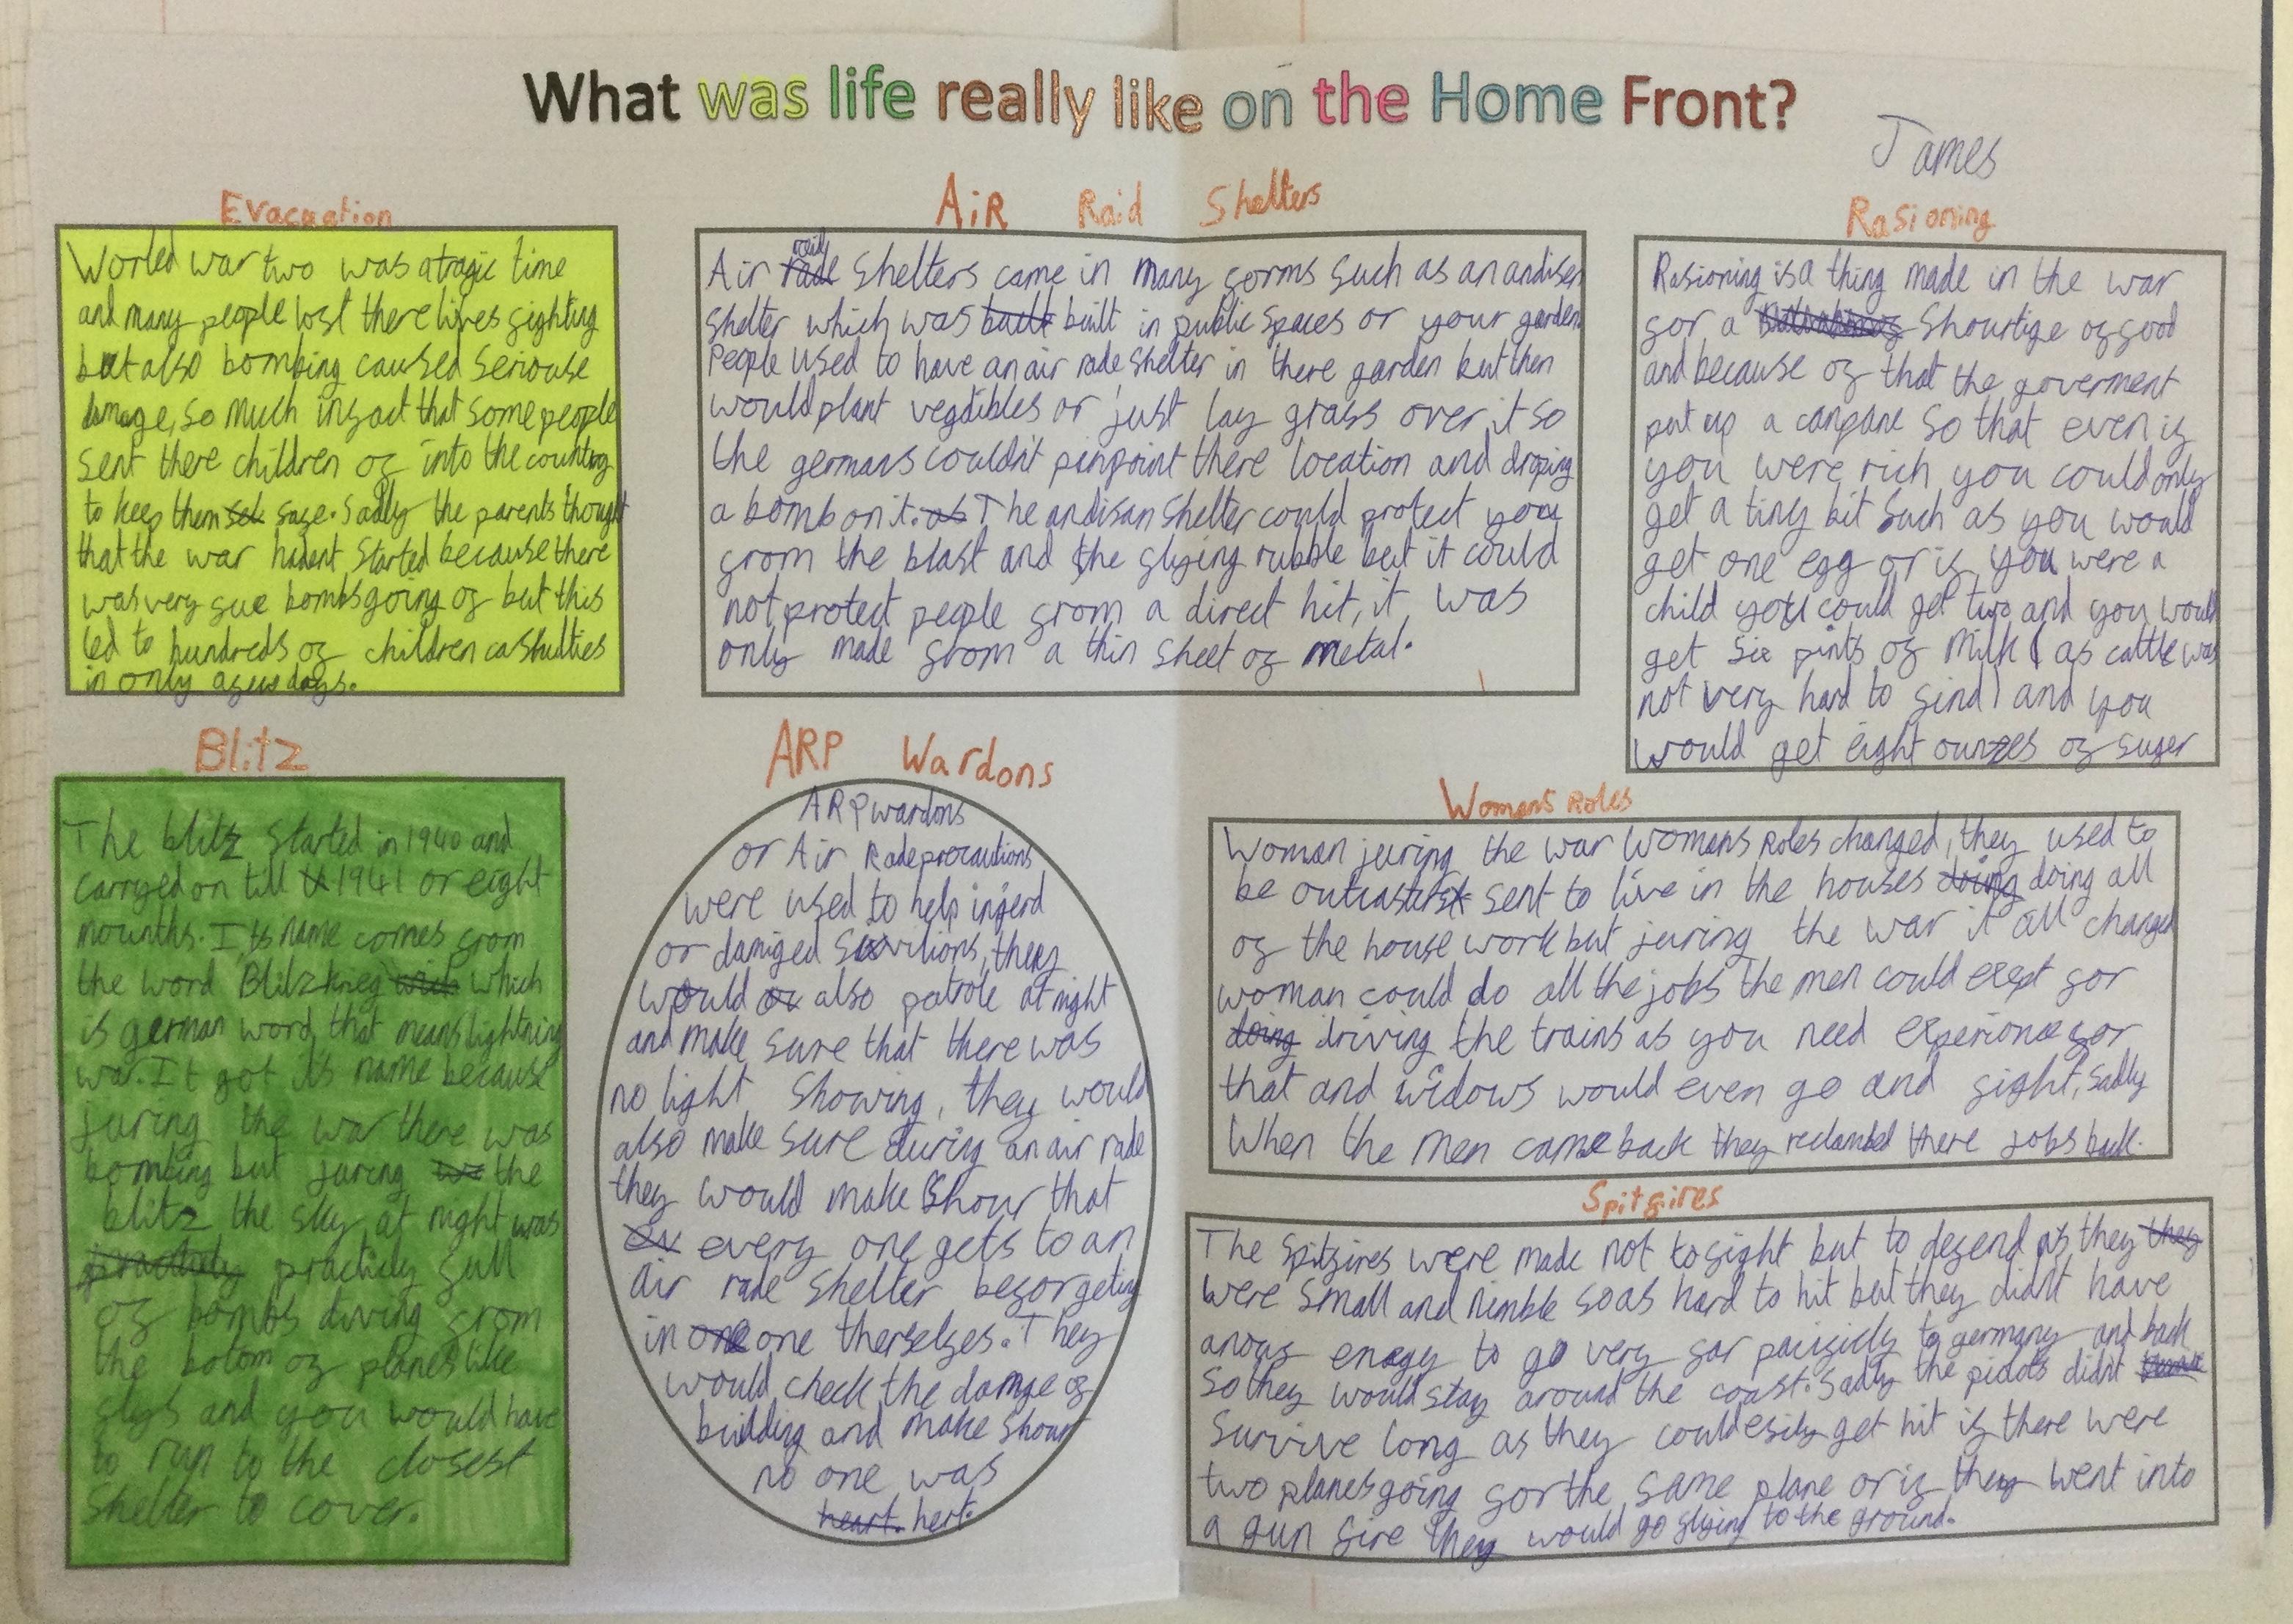 What was life really like on the Home Front?
James
Evacuation
Worled war two was a tragic time
and many people lost there lives fighting
but also bombing caused seriouse
damage, so much infact that some people
sent there children of into the countrey
to keep them safe. Sadly the parents thought
that the war hadent started because there
was very few bombs going of but this
led to hundreds of children
in only a few days.
Air Raid Shelters
Air raid shelters came in many forms such as an
shelter which was built in public spaces or your garden
People used to have an air rade shelter in there garden but then
would plant or just lay grass over it so
the germans couldn't pinpoint there location and droping
a bomb on it. The andisan shelter could protect you
from the blast and the flying rubble but it could
not protect people from a direct hit, it was
only made from a thin sheet of metal.
Rasioning
Rasioning is a thing made in the war
for a shourtige of food
and because of that the goverment
put up a canpane so that even if
you were rich you could only
get a tiny bit such as you would
get one egg or if you were a
child you could get two and you would
get six pints of milk (as cattle was
not very hard to find) and you
would get eight ounzes of suger
Blitz
The blitz started in 1940 and
carryed on till 1941 or eight
mounths. It,s name comes from
the word Blitzkrieg which
is german word that means lightning
war. It got its name because
juring the war there was
bombing but juring the
blitz the sky at night was
practicly full
of bombs diving from
the botom of planes like
flys and you would have
to run to the closest
shelter to cover.
ARP Wardons
ARP wardons
or Air Rade procautions
were used to help injerd
or damiged they
would also patrole at night
and make sure that there was
no light showing, they would
also make sure during an air rade
they would make shour that
every one gets to an
air rade shelter befor geting
in one therselfes. They
would check the damge of
building and make shour
no one was
hert.
Womans Roles
Woman juring the war womans roles changed, they used to
be sent to live in the houses doing all
of the house work but juring the war it all changed
woman could do all the jobs the men could exept for
driving the trains as you need experionce for
that and widows would even go and fight, sadly
When the men came back they reclambed there jobs back.
Spitfires
The spitfires were made not to fight but to defend as they
were small and nimble so as hard to hit but they didnt have
anouf enegy to go very far to germany and back
so they would stay around the coast. Sadly the didnt
survive long as they could esily get hit if there were
two planes going for the same plane or if they went into
a gun fire they would go flying to the ground.